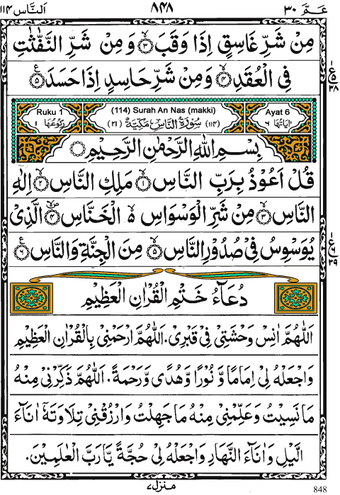 اَلنَّاس ۱۱۴ ۸۴۸ عـــمّ ۳۰
مِنْ شَرِّ غَاسِقٍ اِذَا وَقَبَ ۙ۳ وَ مِنْ شَرِّ النَّفّٰثٰتِ
فِی الْعُقَدِ ۙ۴ وَ مِنْ شَرِّ حَاسِدٍ اِذَا حَسَدَ ۠۵
Ruku 1 (114) Surah An Nas (makki) Ayat 6
رُکُوْعُهَا ۱ (۲۱) سُوْرَۃُ النَّاسِ مَکِّیَّۃٌ (۱۱۴) اٰیَاتُهَا ۶
بِسْمِ اللّٰهِ الرَّحْمٰنِ الرَّحِیْمِ
قُلْ اَعُوْذُ بِرَبِّ النَّاسِ ۙ۱ مَلِكِ النَّاسِ ۙ۲ اِلٰهِ
النَّاسِ ۙ۳ مِنْ شَرِّ الْوَسْوَاسِ ۙ۬ الْخَنَّاسِ ۪ۙ۴ الَّذِیْ
یُوَسْوِسُ فِیْ صُدُوْرِ النَّاسِ ۙ۵ مِنَ الْجِنَّةِ وَ النَّاسِ ۠۶
دُعَاءُ خَتْمِ الْقُرْاٰنِ الْعَظِیْمِ
اَللّٰهُمَّ اٰنِسْ وَحْشَتِیْ فِیْ قَبْرِیْ. اَللّٰهُمَّ ارْحَمْنِیْ بِالْقُرْاٰنِ الْعَظِیْمِ
وَاجْعَلْهُ لِیْ اِمَامًا وَّ نُوْرًا وَّ هُدًی وَّ رَحْمَةً. اَللّٰهُمَّ ذَکِّرْنِیْ مِنْهُ
مَا نَسِیْتُ وَعَلِّمْنِیْ مِنْهُ مَا جَهِلْتُ وَارْزُقْنِیْ تِلَاوَتَهٗ اٰنَآءَ
الَّیْلِ وَاٰنَآءَ النَّهَارِ وَاجْعَلْهُ لِیْ حُجَّةً یَّا رَبَّ الْعٰلَمِیْنَ.
منزل ۷
848